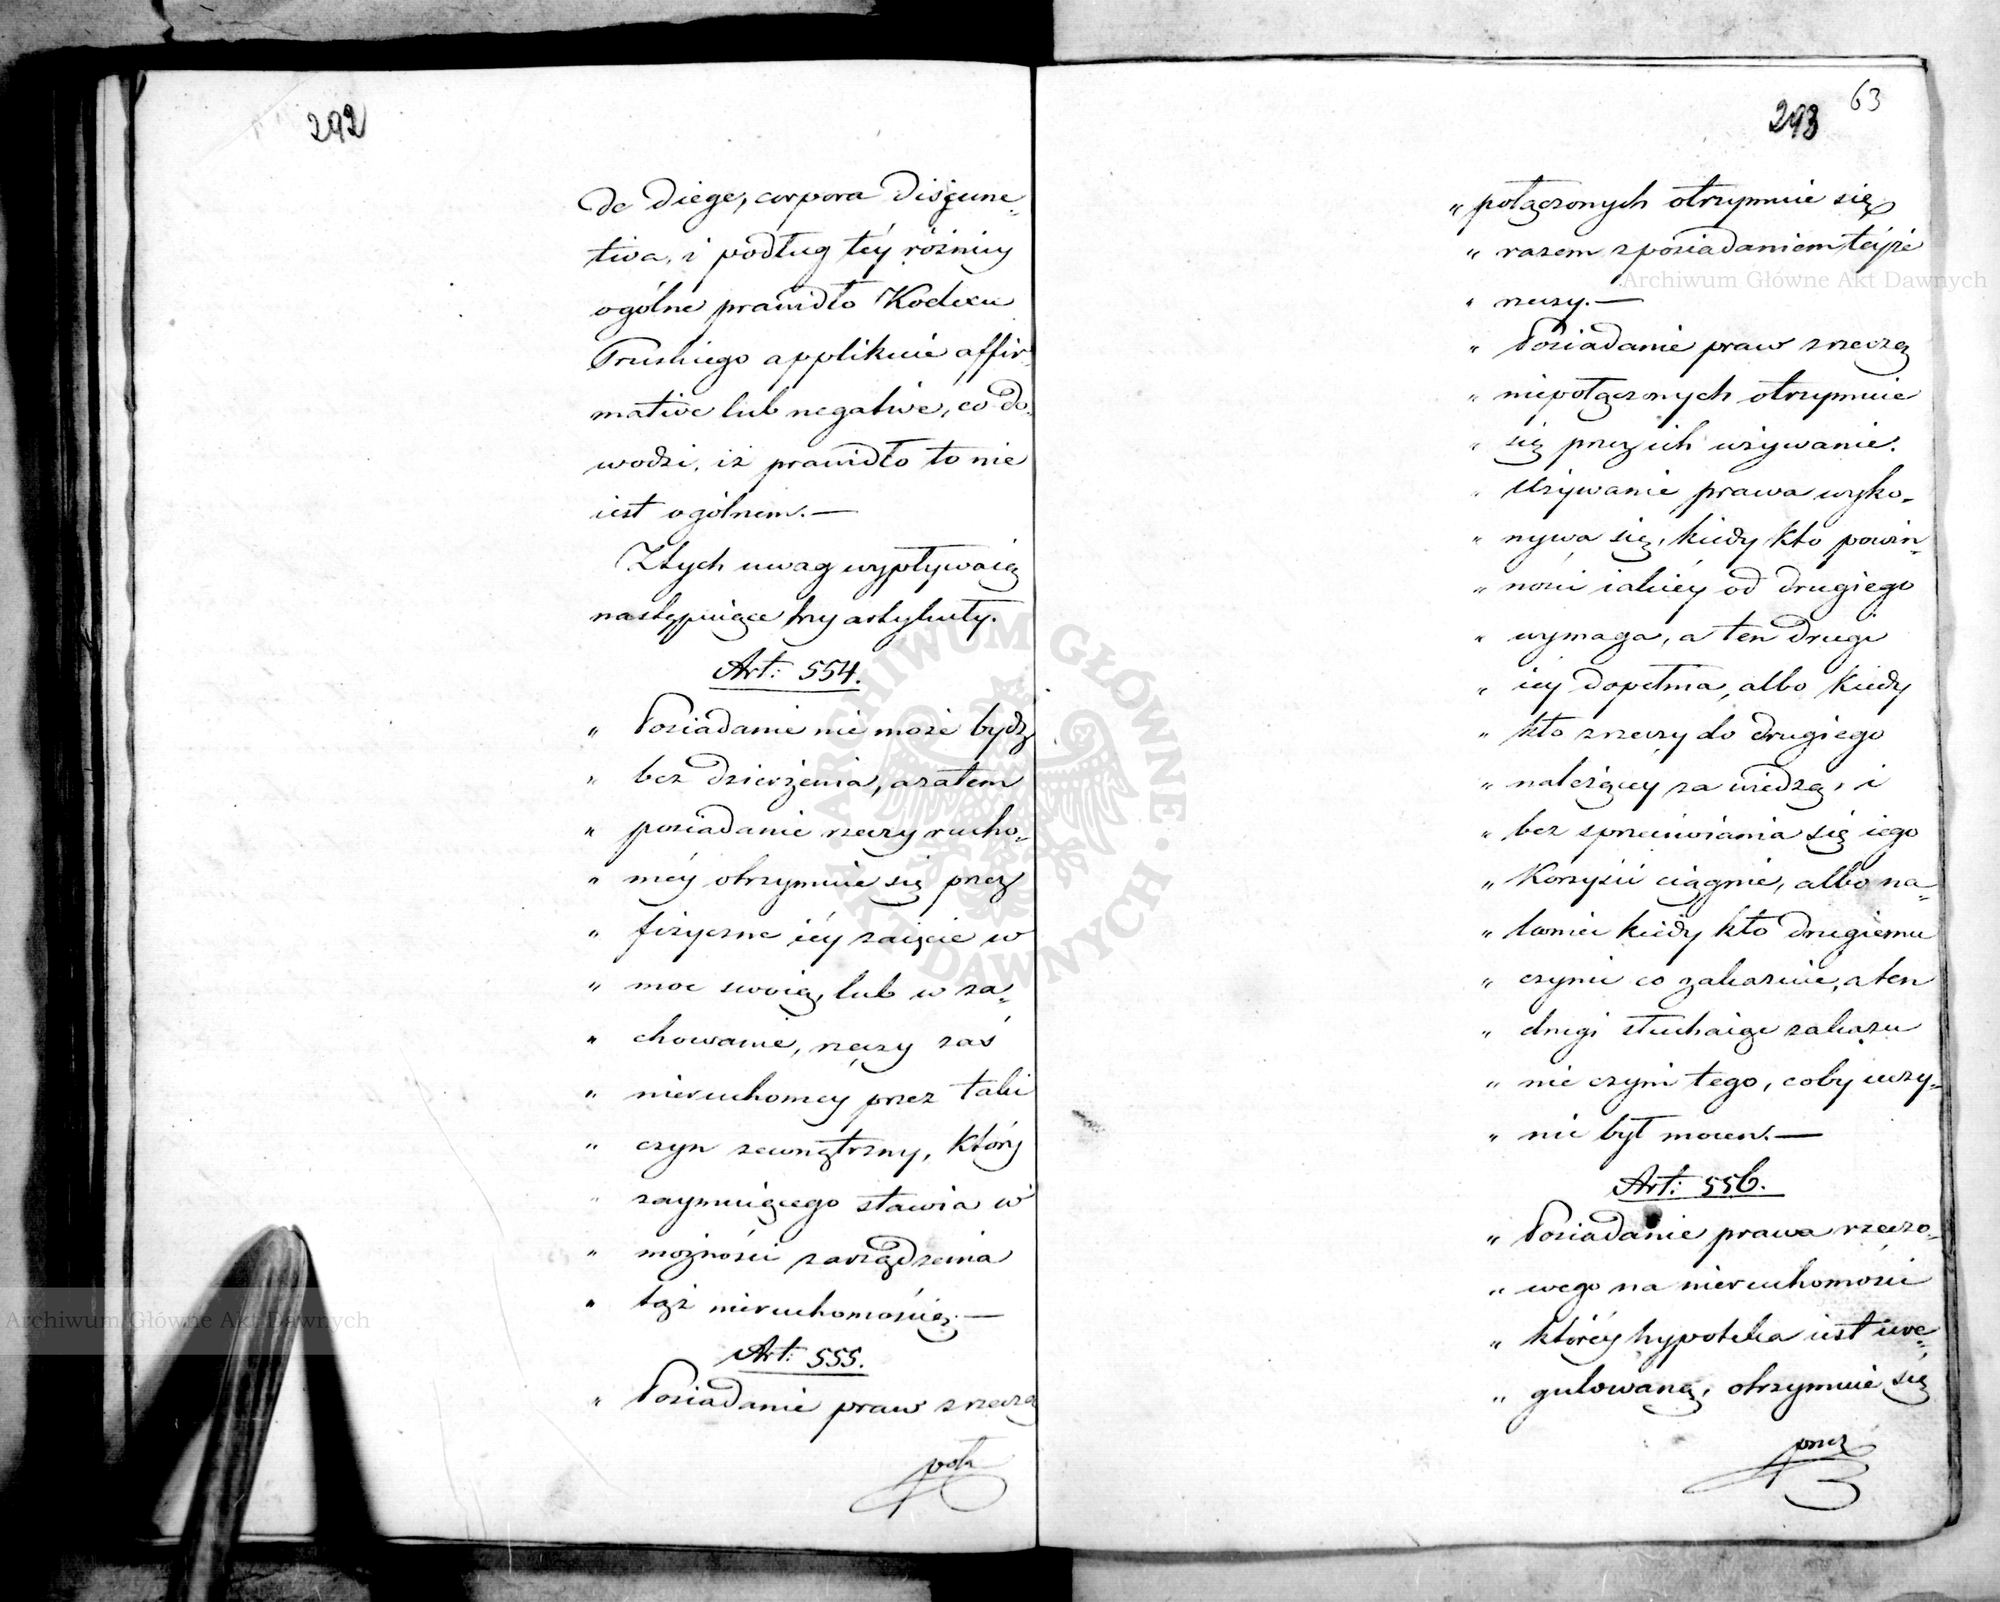 292
de Diege, corpora disjunc-
tiva, i podług téy różnicy
ogólne prawidło Kodexu
Pruskiego applikuie affir-
mative lub negative, co do-
wodzi, iż prawidło to nie
iest ogólnem.—
Z tych uwag wypływaią
następuiące trzy artykuły.
Art: 554.
„ Posiadanie nie może bydź
„ bez dzierżenia, a zatem
„ posiadanie rzeczy rucho-
„ méy otrzymuie się przez
„ fizyczne iéy zaięcie w
„ moc swoią, lub w za-
„ chowanie, rzeczy zaś
„ nieruchomey przez taki
„ czyn zewnętrzny, który
„ zaymuiącego stawia w
„ możności zarządzenia
„ tąż nieruchomością.—
Art: 555.
„ Posiadanie praw z rzeczą
połą
63
293
„ połączonych otrzymuie się
„ razem z posiadaniem téyże
„ rzeczy.—
„ Posiadanie praw z rzeczą
„ niepołączonych otrzymuie
„ się przez ich używanie.
„ Używanie prawa wyko-
„ nywa się, kiedy kto powin-
„ ności iakiéy od drugiego
„ wymaga, a ten drugi
„ iey dopełnia, albo kiedy
„ kto z rzeczy do drugiego
„ należącey za wiedzą, i
„ bez sprzeciwiania się iego
„ korzyści ciągnie, albo na-
„ koniec kiedy kto drugiemu
„ czynić co zakazuie, a ten
„ drugi słuchaiąc zakazu
„ nie czyni tego, coby uczy-
„ nić był mocen.—
Art: 556.
„ Posiadanie prawa rzeczo-
„ wego na nieruchomości
„ któréy hypoteka iest ure-
„ gulowaną, otrzymuie się
przez
Archiwum Główne Akt Dawnych
Archiwum Główne Akt Dawnych
ARCHIWUM GŁÓWNE AKT DAWNYCH